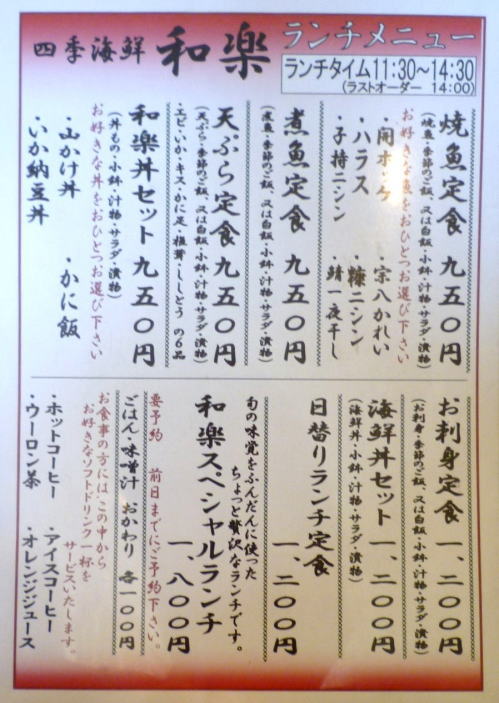 四季海鮮 和楽
ランチメニュー
ランチタイム11:30～14:30
(ラストオーダー 14:00)
焼魚定食 九五〇円
(焼魚・季節のご飯、又は白飯・小鉢・汁物・サラダ・漬物)
お好きな魚をおひとつお選び下さい
・開ホッケ ・宗八かれい
・ハラス ・糠ニシン
・子持ニシン ・鯖一夜干し
煮魚定食 九五〇円
(煮魚・季節のご飯、又は白飯・小鉢・汁物・サラダ・漬物)
天ぷら定食 九五〇円
(天ぷら・季節のご飯、又は白飯・小鉢・汁物・サラダ・漬物)
・エビ・いか・キス・かに足・椎茸・ししとう の6品
和楽丼セット 九五〇円
(丼もの・小鉢・汁物・サラダ・漬物)
お好きな丼をおひとつお選び下さい
・山かけ丼 ・かに飯
・いか納豆丼
お刺身定食 一、二〇〇円
(お刺身・季節のご飯、又は白飯・小鉢・汁物・サラダ・漬物)
海鮮丼セット 一、二〇〇円
(海鮮丼・小鉢・汁物・サラダ・漬物)
日替りランチ定食
一、二〇〇円
旬の味覚をふんだんに使った
ちょっと贅沢なランチです。
和楽スペシャルランチ
一、八〇〇円
要予約 前日までにご予約下さい。
ごはん・味噌汁 おかわり 各一〇〇円
お食事の方には この中から
お好きなソフトドリンク一杯を
サービスいたします。
・ホットコーヒー ・アイスコーヒー
・ウーロン茶 ・オレンジジュース